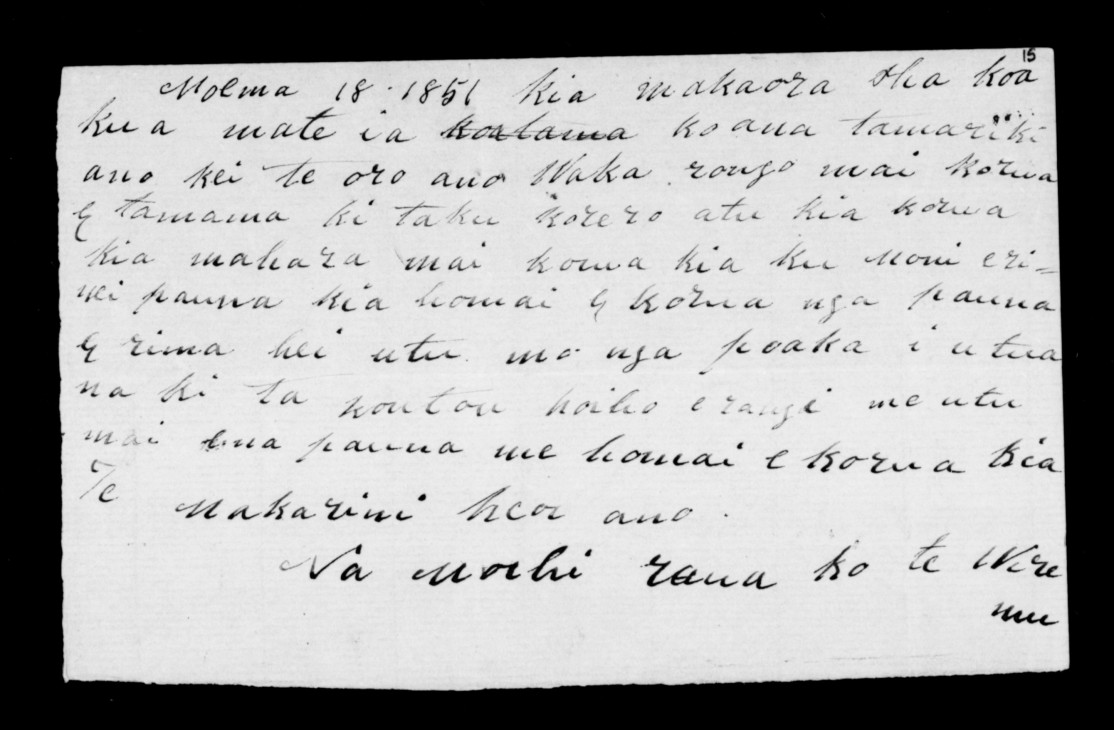 15
Moema 18 · 1851 kia makaora oha koa
kua mate ia koatama ko ana tamariki
ano kei te oro ano Waka rongo mai korua
e tamama ki taku korero atu kia korua
kia mahara mai korua kia ku moni eri-
nei pauna kia homai e korua nga pauna
e rima hei utu mo nga poaka i utua
na ki ta koutou hoiho erangi me utu
mai ena pauna me homai e korua kia
Te
Makarini heoi ano.
Na Moihi raua ko te Wire
mu